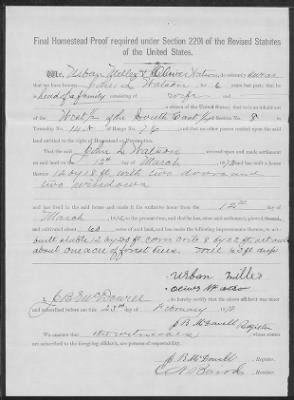 Final Homestead Proof required under Section 2291 of the Revised Statutes
of the United States.
We, Urban Miller & Oliver Watson do solemnly swear
that we have known John L Watson for 6 years last past; that he is
head of a family consisting of wife
a citizen of the United States; that he is an inhabitant
of the West ½ of the South East ¼ of Section No. 8 in
Township No. 14 S of Range No. 7 E and that no other person resided upon the said
land entitled to the right of Homestead or Pre-emption.
That the said John L Watson entered upon and made settlement
on said land on the 12th day of March 1872 and has built a house
thereon 12 by 18 ft, with two doors and
two windows
and has lived in the said house and made it his exclusive home from the 12th day of
March 1872 to the present time, and that he has, since said settlement, plowed, fenced, and
cultivated about 60 acres of said land, and has made the following improvements thereon, to wit:
built stable 12 by 20 ft corn crib 8 by 12 ft, set out
about one acre of forest trees. Well 42 ft deep
Urban Miller
Oliver Watson
I, J B McDowell do hereby certify that the above affidavit was subscribed
and sworn to before me this 25th day of February 1878
J B McDowell Register
We certify that the witnesses whose names are
subscribed to the foregoing affidavit, are persons of respectability.
J B McDowell, Register.
Receiver.